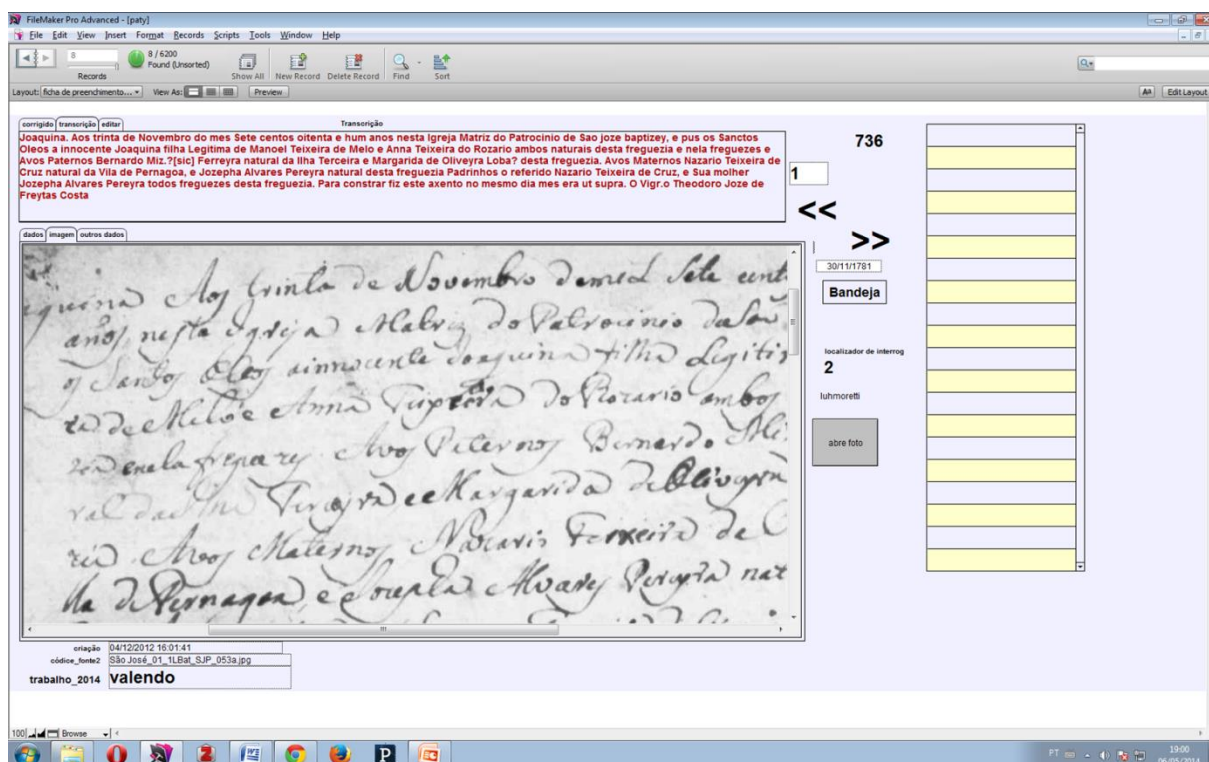 FileMaker Pro Advanced - [paty]
File Edit View Insert Format Records Scripts Tools Window Help
8
8 / 6200
Found (Unsorted)
Records
Show All New Record Delete Record Find Sort
Layout: ficha de preenchimento... View As: Preview
Aa Edit Layout
corrigido transcrição editar
Transcrição
Joaquina. Aos trinta de Novembro do mes Sete centos oitenta e hum anos nesta Igreja Matriz do Patrocinio de Sao joze baptizey, e pus os Sanctos
Oleos a innocente Joaquina filha Legitima de Manoel Teixeira de Melo e Anna Teixeira do Rozario ambos naturais desta freguezia e nela freguezes e
Avos Paternos Bernardo Miz.?[sic] Ferreyra natural da Ilha Terceira e Margarida de Oliveyra Loba? desta freguezia. Avos Maternos Nazario Teixeira de
Cruz natural da Vila de Pernagoa, e Jozepha Alvares Pereyra natural desta freguezia Padrinhos o referido Nazario Teixeira de Cruz, e Sua molher
Jozepha Alvares Pereyra todos freguezes desta freguezia. Para constrar fiz este axento no mesmo dia mes era ut supra. O Vigr.o Theodoro Joze de
Freytas Costa
736
1
<<
>>
dados imagem outros dados
Aos trinta de Novembro Sete cent
anos nesta Igreja Matriz do Patrocinio
os Santos Oleos a innocente Joaquina filha Legiti
de Mello e Anna do Rozario ambos
Avos Paternos Bernardo
e Margarida de Oliveyra
Avos Maternos Nazario de C
de Pernagoa e Jozepha Alvares Pereyra nat
30/11/1781
Bandeja
localizador de interrog
2
luhmoretti
abre foto
criação 04/12/2012 16:01:41
códice_fonte2 São José_01_1LBat_SJP_053a.jpg
trabalho_2014 valendo
100 Browse
PT 19:00
06/05/2014